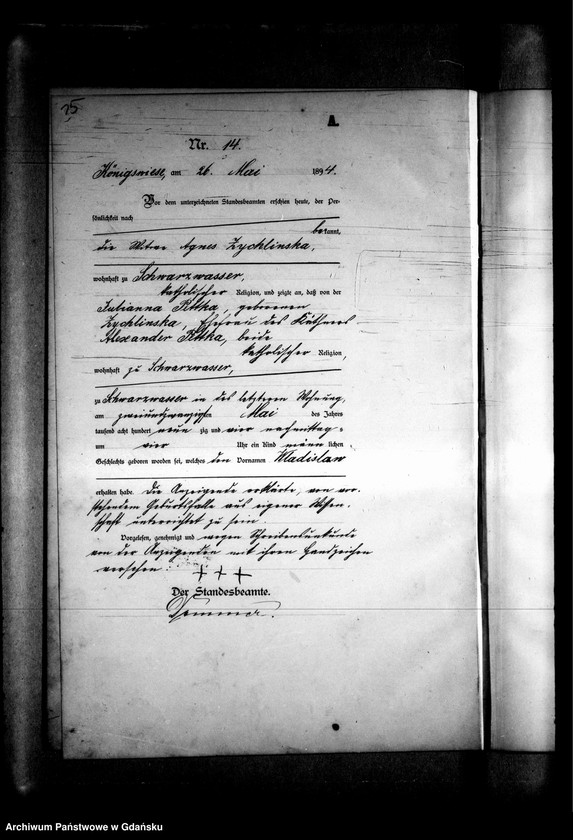 25
A
Nr. 14.
Königswiese, am 26. Mai 1894.
Vor dem unterzeichneten Standesbeamten erschien heute, der Per-
sönlichkeit nach
bekannt,
die Witwe Agnes Zychlinska,
wohnhaft zu Schwarzwasser,
katholischer Religion, und zeigte an, daß von der
Julianna Pettka, geborenen
Zychlinska, Ehefrau des Käthners
Alexander Pettka, beide
katholischer Religion
wohnhaft zu Schwarzwasser,
zu Schwarzwasser in des letzteren Wohnung,
am zweiundzwanzigsten Mai des Jahres
tausend acht hundert neunzig und vier nachmittags
um vier Uhr ein Kind männlichen
Geschlechts geboren worden sei, welches den Vornamen Wladislaw
erhalten habe. Die Anzeigende erklärte, von vor-
stehendem Geburtsfalle aus eigener Wissen-
schaft unterrichtet zu sein.
Vorgelesen, genehmigt und wegen Schreibensunkunde
von der Anzeigenden mit ihren Handzeichen
versehen.
+ + +
Der Standesbeamte.
Archiwum Państwowe w Gdańsku